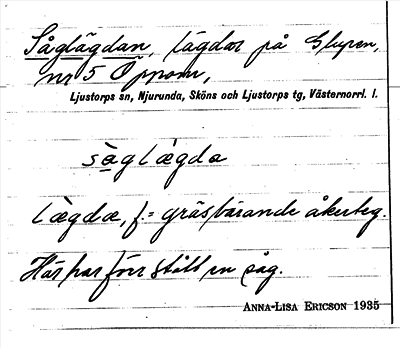 Såglägdan, lägdor på Glupen,
nr 5 Öppom,
Ljustorps sn, Njurunda, Sköns och Ljustorps tg, Västernorrl. l.
sàglægda
lægdæ, f. = gräsbärande åkerteg.
Här har förr stått en såg.
ANNA-LISA ERICSON 1935